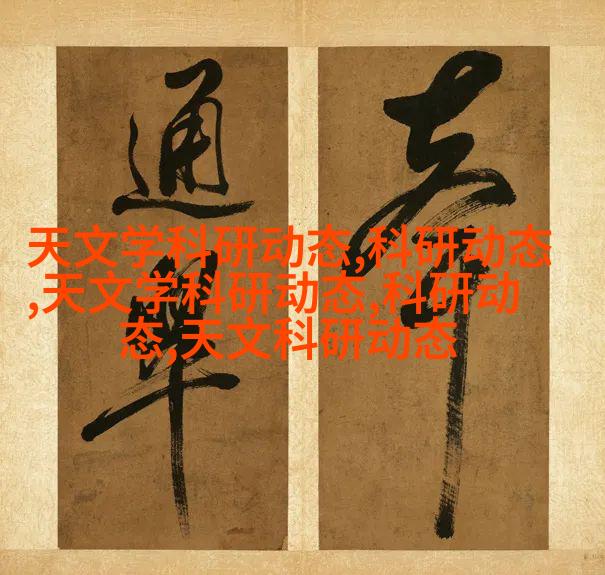 通
天文学科研动态,科研动态
,天文学科研动态,科研动
态,天文科研动态